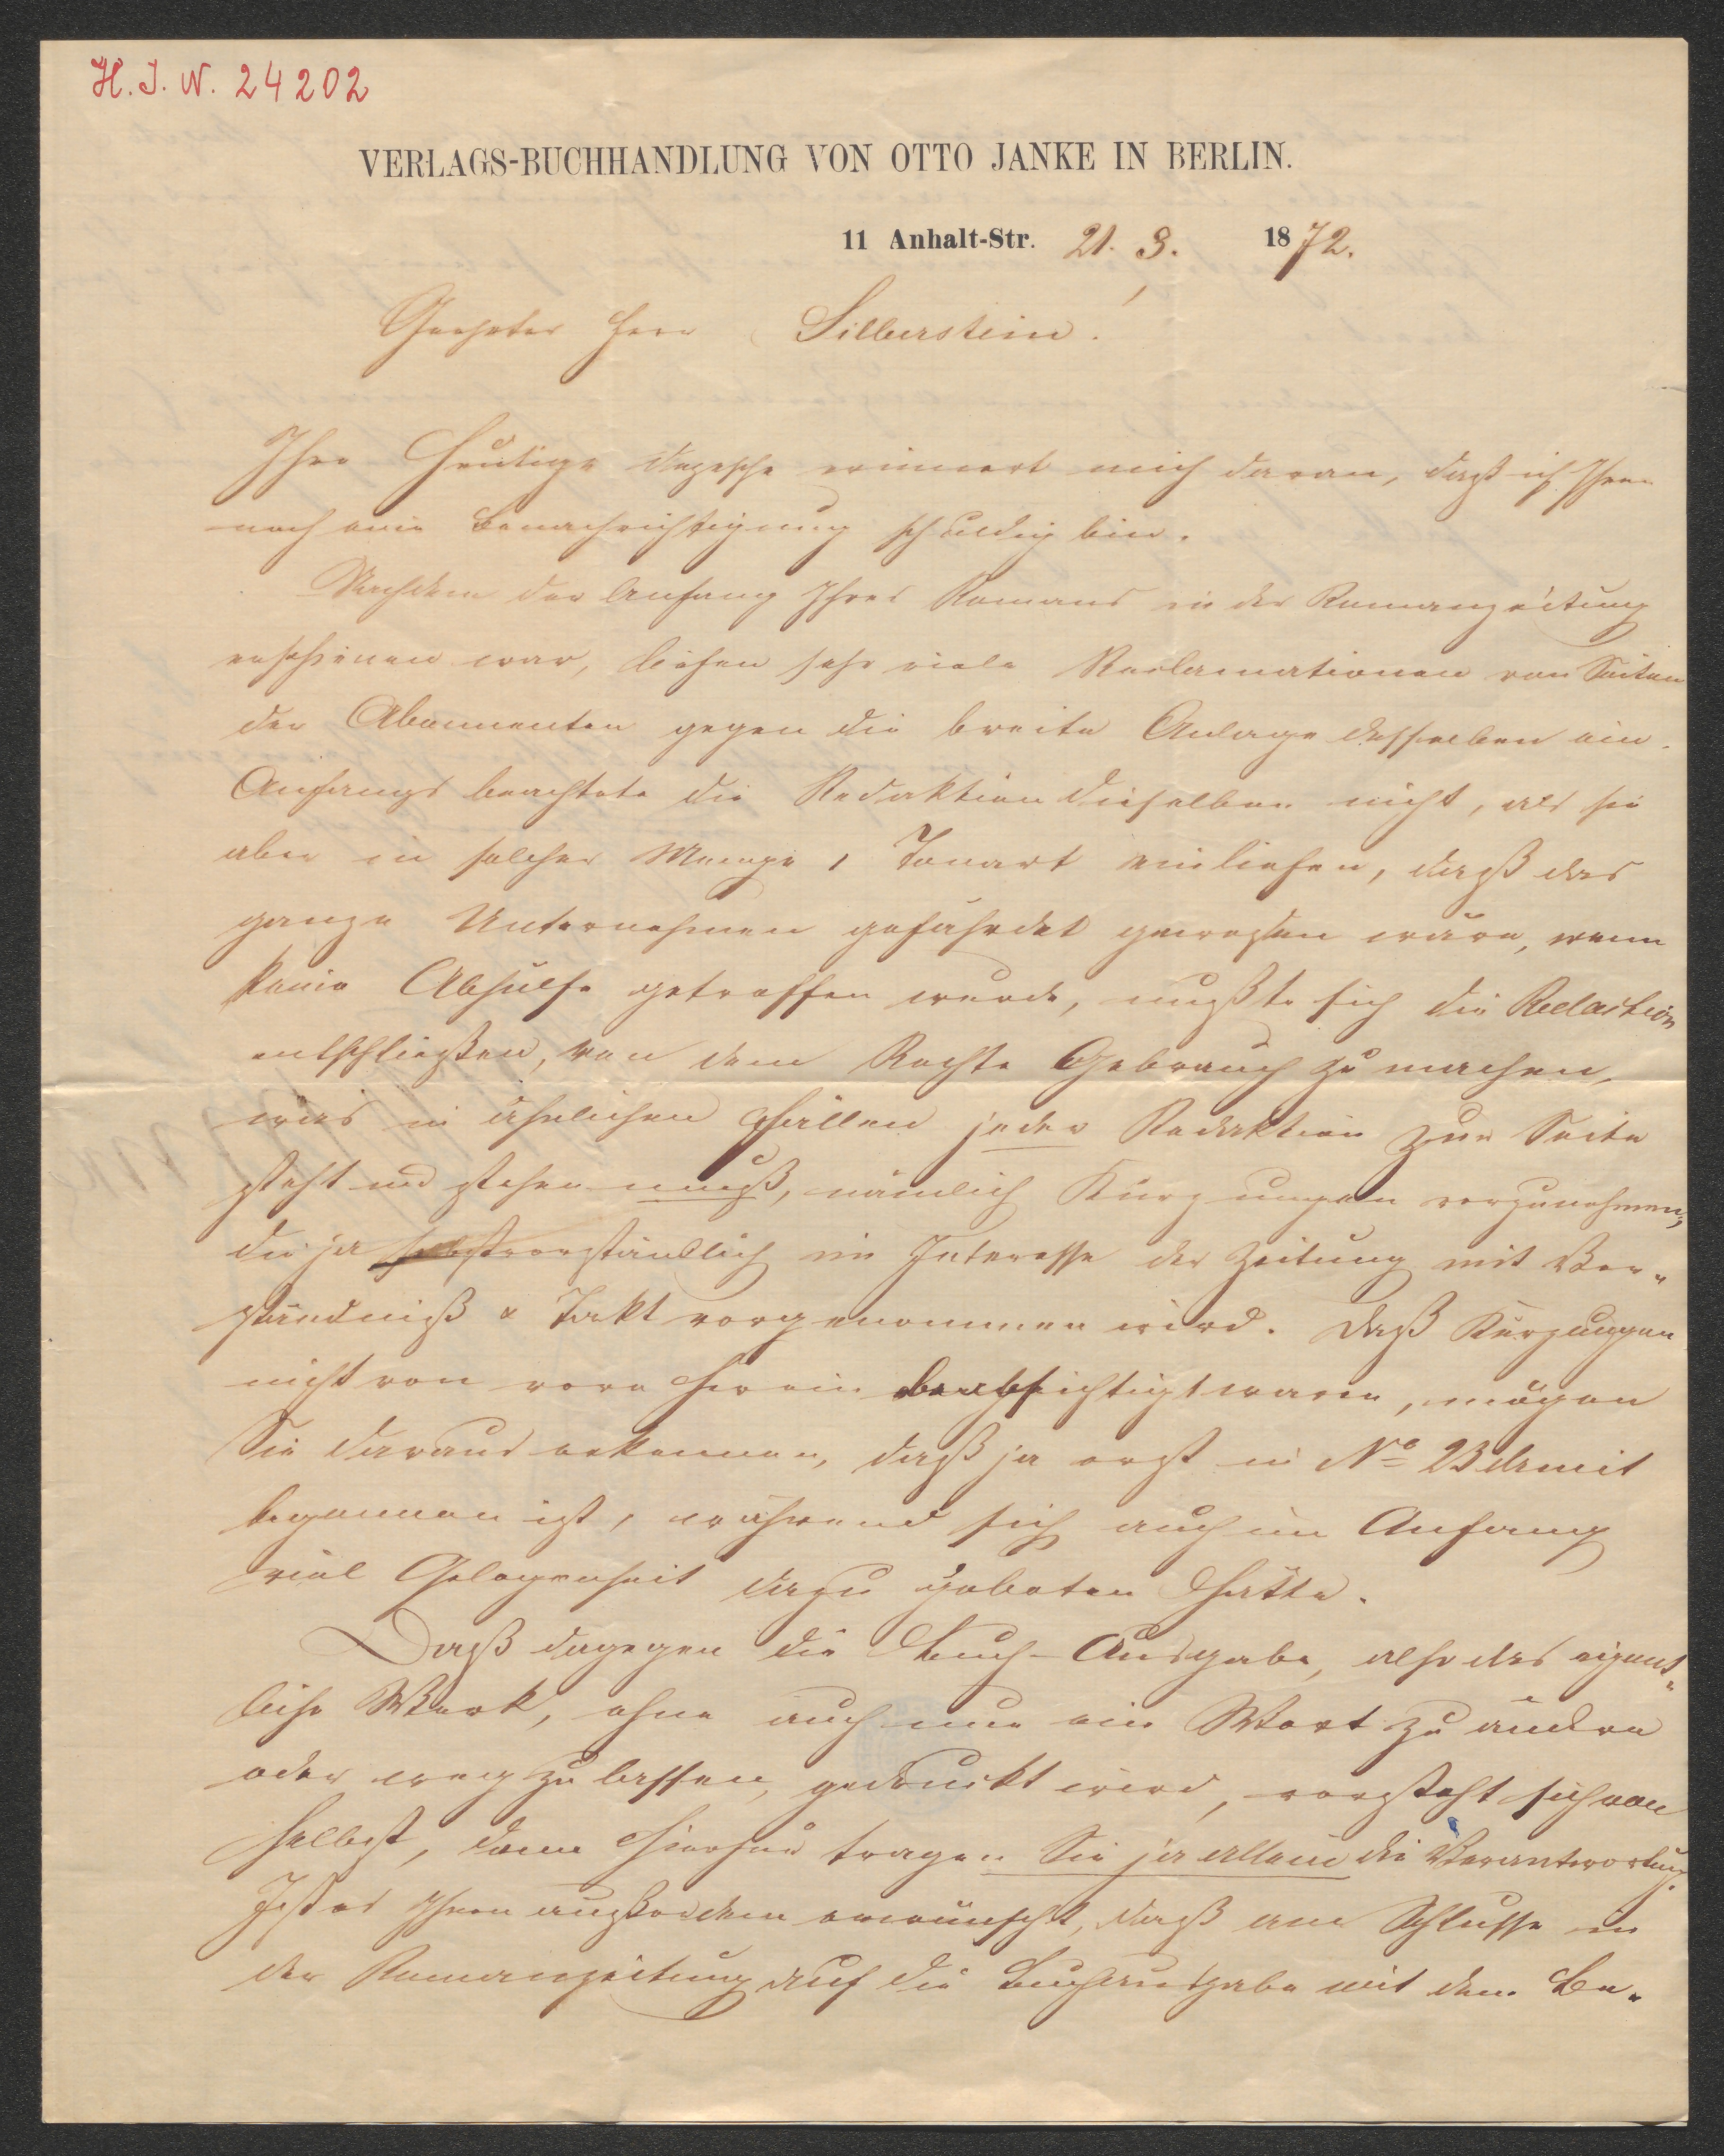 H. I. N. 24202
VERLAGS-BUCHHANDLUNG VON OTTO JANKE IN BERLIN.
11 Anhalt-Str. 21. 3. 1872.
Geehrter Herr Silberstein!
Ihre heutige Depesche erinnert mich daran, daß ich Ihnen
noch eine Benachrichtigung schuldig bin.
Nachdem der Anfang Ihres Romans in der Romanzeitung
erschienen war, liefen sehr viele Reclamationen von Seiten
der Abonnenten gegen die breite Anlage desselben ein.
Anfangs beachtete die Redaktion dieselben nicht, als sie
aber in solcher Menge, Tonart einliefen, daß das
ganze Unternehmen gefährdet gewesen wäre, wenn
keine Abhülfe getroffen wurde, mußte sich die Redaction
entschließen, von dem Rechte Gebrauch zu machen,
was in ähnlichen Fällen jeder Redaktion zur Seite
steht und stehen muß, nämlich Kürzungen vorzunehmen,
die ja selbstverständlich im Interesse der Zeitung mit Ver-
ständniß & Takt vorgenommen wird. Daß Kürzungen
nicht von vorn herein beabsichtigt waren, mögen
Sie daraus erkennen, daß ja erst in No 23 damit
begonnen ist, während sich auch im Anfang
viel Gelegenheit dazu geboten hätte.
Daß dagegen die Buch-Ausgabe, also das eigent-
liche Werk, ohne auch nur ein Wort zu ändern
oder weg zu lassen, gedruckt wird, versteht sich von
selbst, denn hierfür tragen Sie ja allein die Verantwortung.
Ist es Ihnen außerdem erwünscht, daß am Schlusse in
der Romanzeitung auf die Buchausgabe mit dem Be-